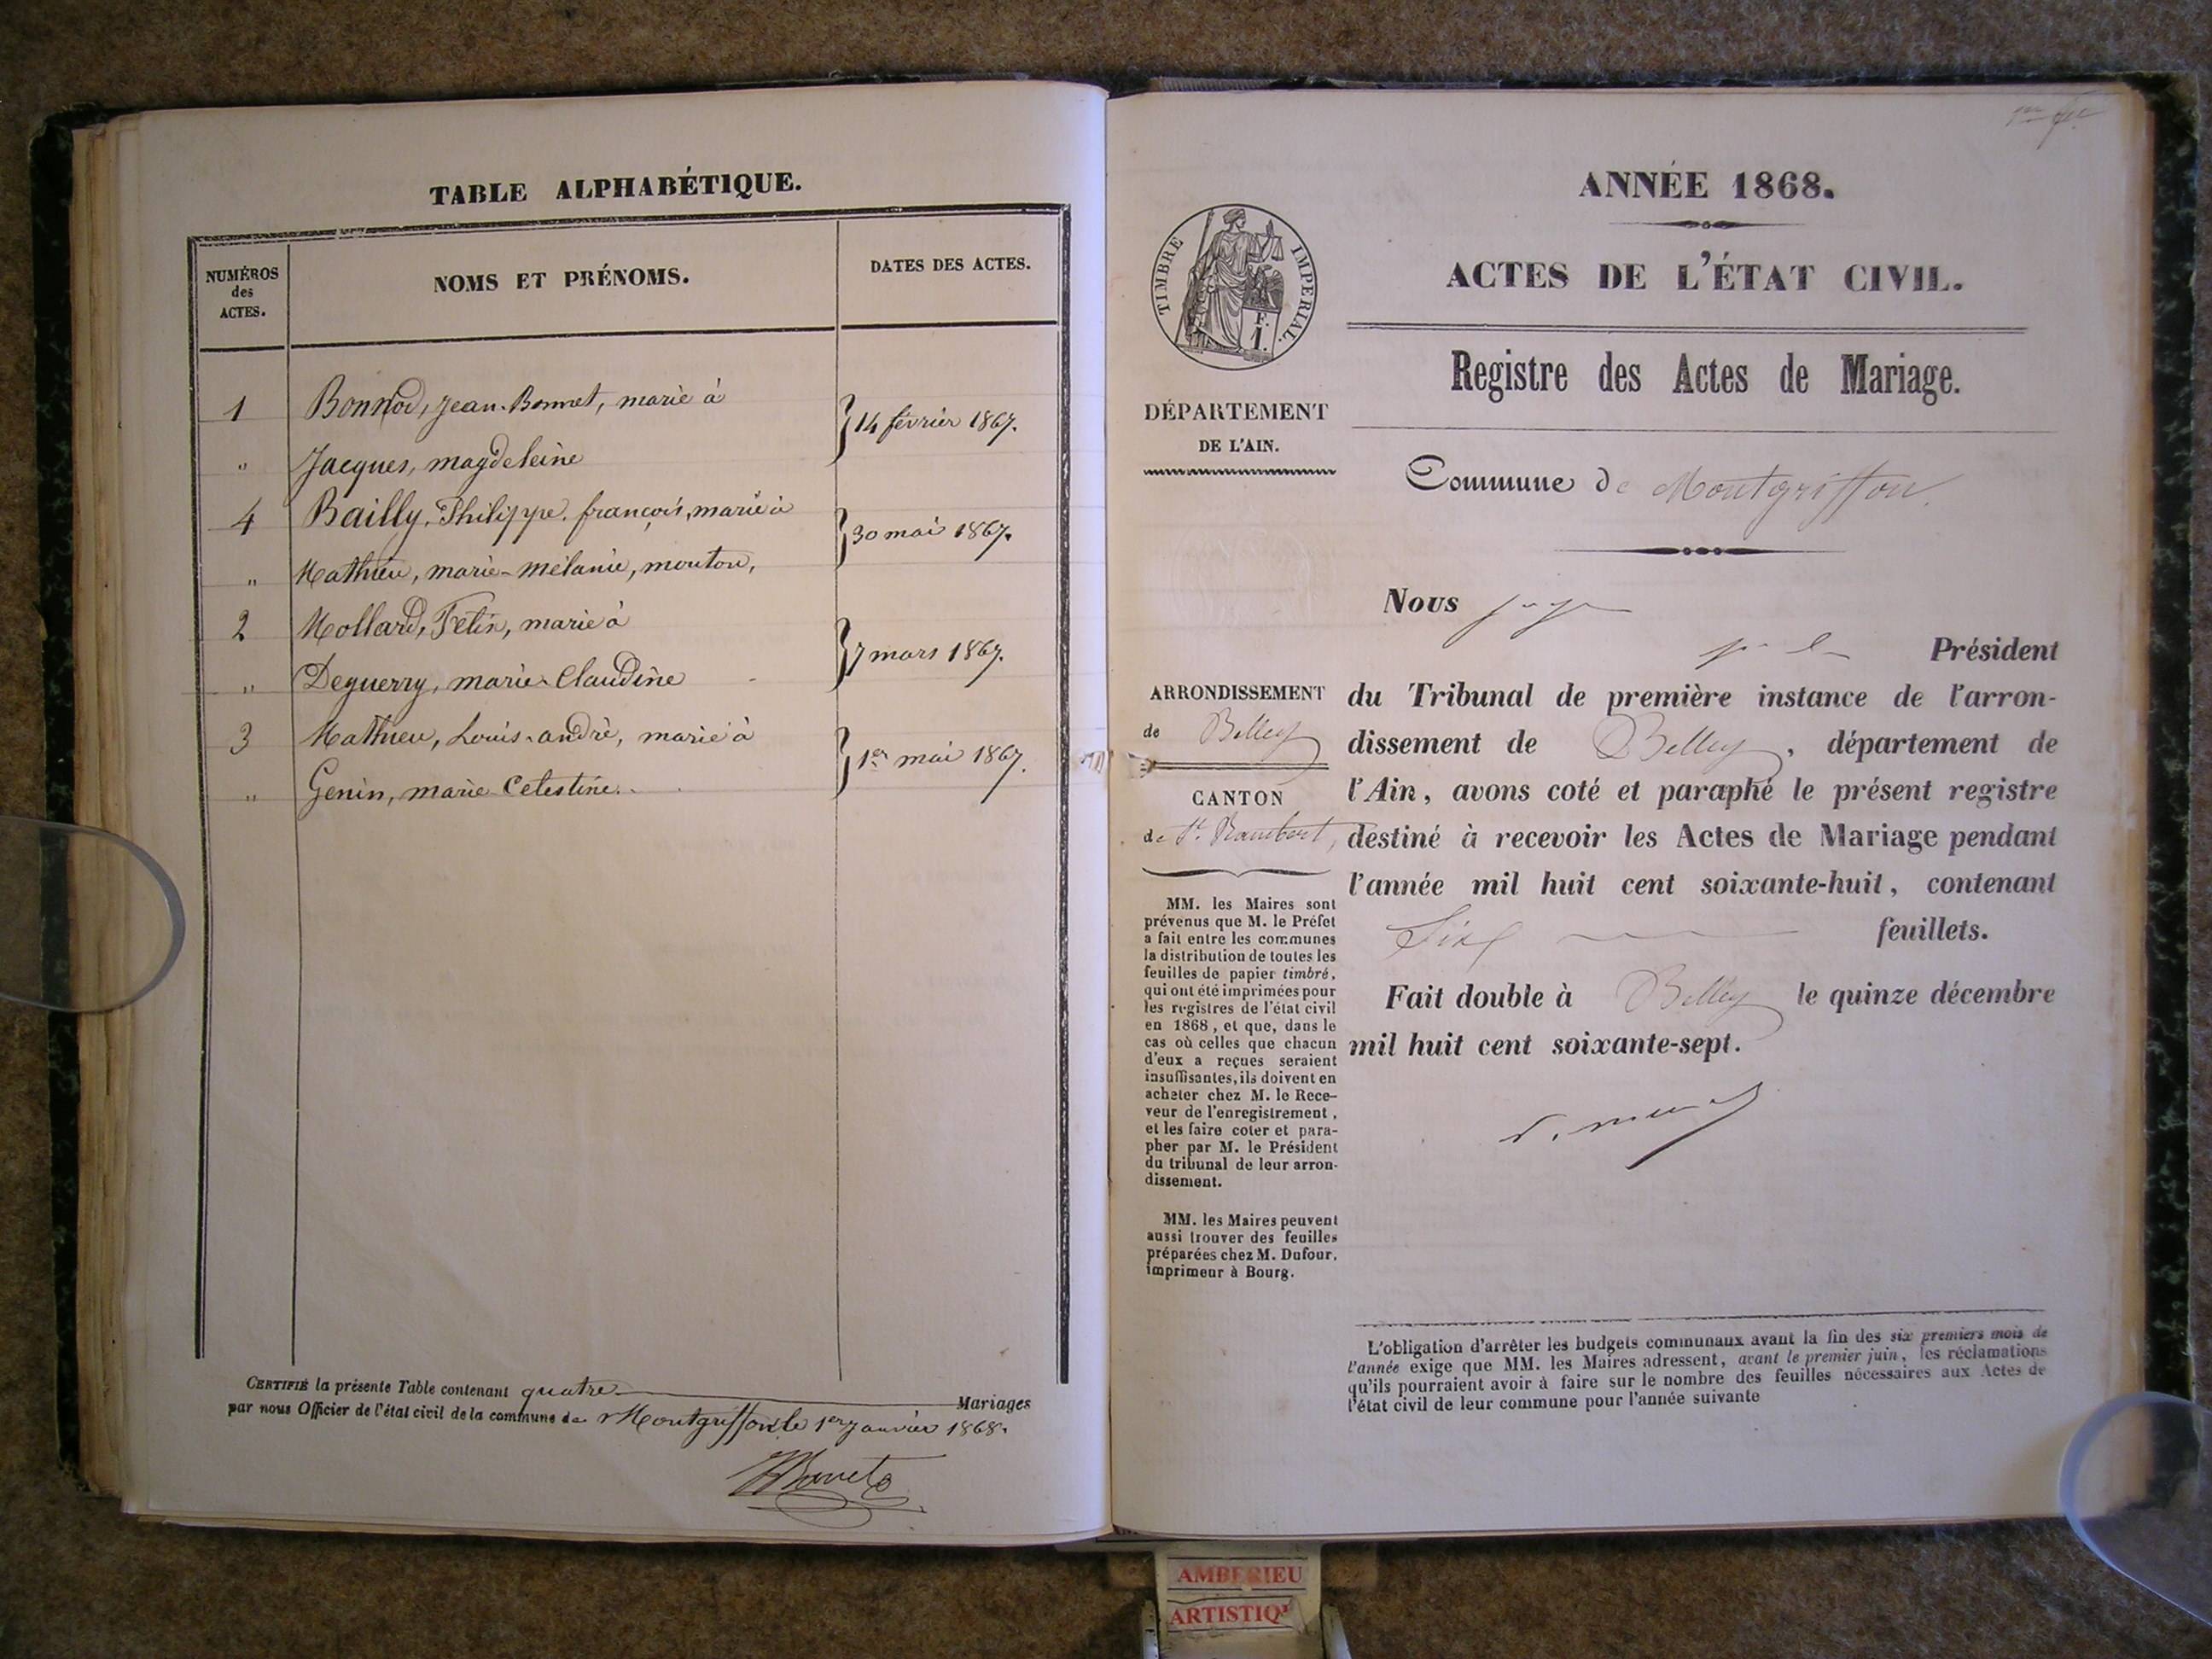 TABLE ALPHABÉTIQUE.
NUMÉROS des ACTES.
NOMS ET PRÉNOMS.
DATES DES ACTES.
1 Bonnod, Jean-Bonnet, marié à
14 février 1867.
" Jacques, magdeleine
4 Bailly, Philippe, françois, marié à
30 mai 1867.
" Mathieu, marie-mélanie, mouton,
2 Mollard, Félix, marié à
7 mars 1867.
" Deguerry, marie-Claudine
3 Mathieu, Louis-andré, marié à
1er mai 1867.
" Genin, marie-Celestine.
CERTIFIÉ la présente Table contenant quatre Mariages
par nous Officier de l'état civil de la commune de Montgriffon le 1er janvier 1868.
ANNÉE 1868.
ACTES DE L'ÉTAT CIVIL.
TIMBRE IMPERIAL.
F.
1.
Registre des Actes de Mariage.
DÉPARTEMENT
DE L'AIN.
Commune de Montgriffon.
ARRONDISSEMENT
de Belley
CANTON
de St. Rambert,
MM. les Maires sont
prévenus que M. le Préfet
a fait entre les communes
la distribution de toutes les
feuilles de papier timbré,
qui ont été imprimées pour
les registres de l'état civil
en 1868, et que, dans le
cas où celles que chacun
d'eux a reçues seraient
insuffisantes, ils doivent en
acheter chez M. le Rece-
veur de l'enregistrement,
et les faire coter et para-
pher par M. le Président
du tribunal de leur arron-
dissement.
MM. les Maires peuvent
aussi trouver des feuilles
préparées chez M. Dufour,
imprimeur à Bourg.
Nous juge
Président
du Tribunal de première instance de l'arron-
dissement de Belley, département de
l'Ain, avons coté et paraphé le présent registre
destiné à recevoir les Actes de Mariage pendant
l'année mil huit cent soixante-huit, contenant
Six feuillets.
Fait double à Belley le quinze décembre
mil huit cent soixante-sept.
L'obligation d'arrêter les budgets communaux avant la fin des six premiers mois de
l'année exige que MM. les Maires adressent, avant le premier juin, les réclamations
qu'ils pourraient avoir à faire sur le nombre des feuilles nécessaires aux Actes de
l'état civil de leur commune pour l'année suivante
AMBERIEU
ARTISTIQ